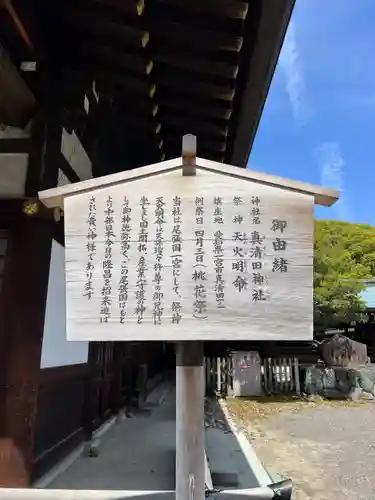 御由緒
神社名 真清田神社
祭神 天火明命
鎮座地 愛知県一宮市真清田一
例祭日 四月三日(桃花祭)
当社は尾張国一宮にして 祭神
天火明命は天孫瓊々杵尊の御兄神に
坐しまし国土開拓、産業守護の神と
して御神徳弥高く、この尾張国はもと
より中部日本今日の隆昌を招来遊ばし
た貴い神様であります